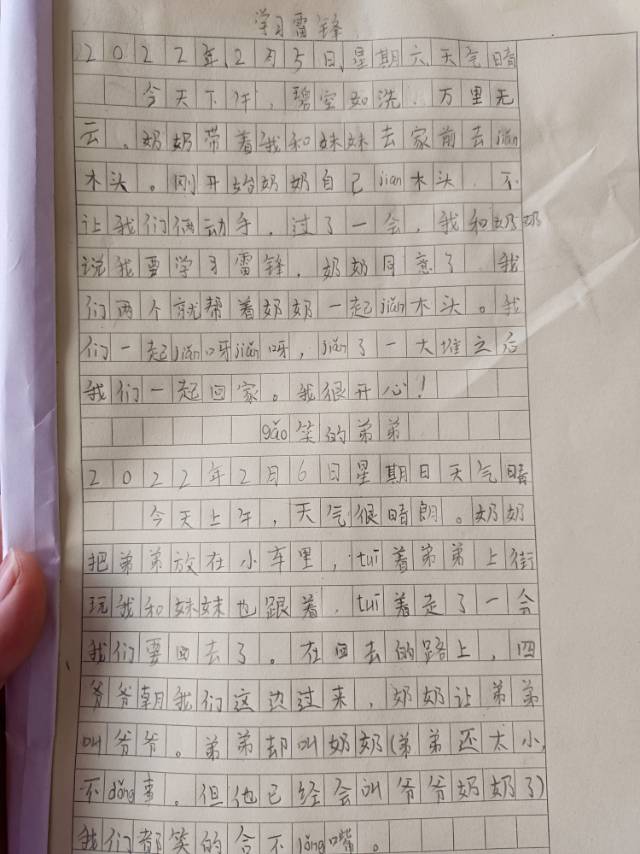 学习雷锋
2022年2月5日,星期六天气晴
今天下午，碧空如洗，万里无
云。奶奶带着我和妹妹去家前去jiǎn
木头。刚开始奶奶自己jiǎn木头，不
让我们俩动手，过了一会，我和奶奶
说我要学习雷锋，奶奶同意了 我
们两个就帮着奶奶一起jiǎn木头。我
们一起jiǎn呀jiǎn呀，jiǎn了一大堆之后
我们一起回家。我很开心！
gǎo笑的弟弟
2022年2月6日星期日天气晴
今天上午，天气很晴朗。奶奶
把弟弟放在小车里，tuī着弟弟上街
玩我和妹妹也跟着，tuī着走了一会
我们要回去了。在回去的路上，四
爷爷朝我们这边过来，奶奶让弟弟
叫爷爷。弟弟却叫奶奶(弟弟还太小,
不dǒng事，但他已经会叫爷爷奶奶了)
我们都笑的合不lǒng嘴。